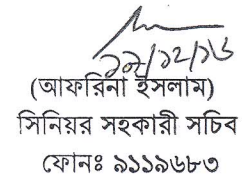 ১২/১২/১৬
(আফরিনা ইসলাম)
সিনিয়র সহকারী সচিব
ফোনঃ ৯১১৯৬৮৩